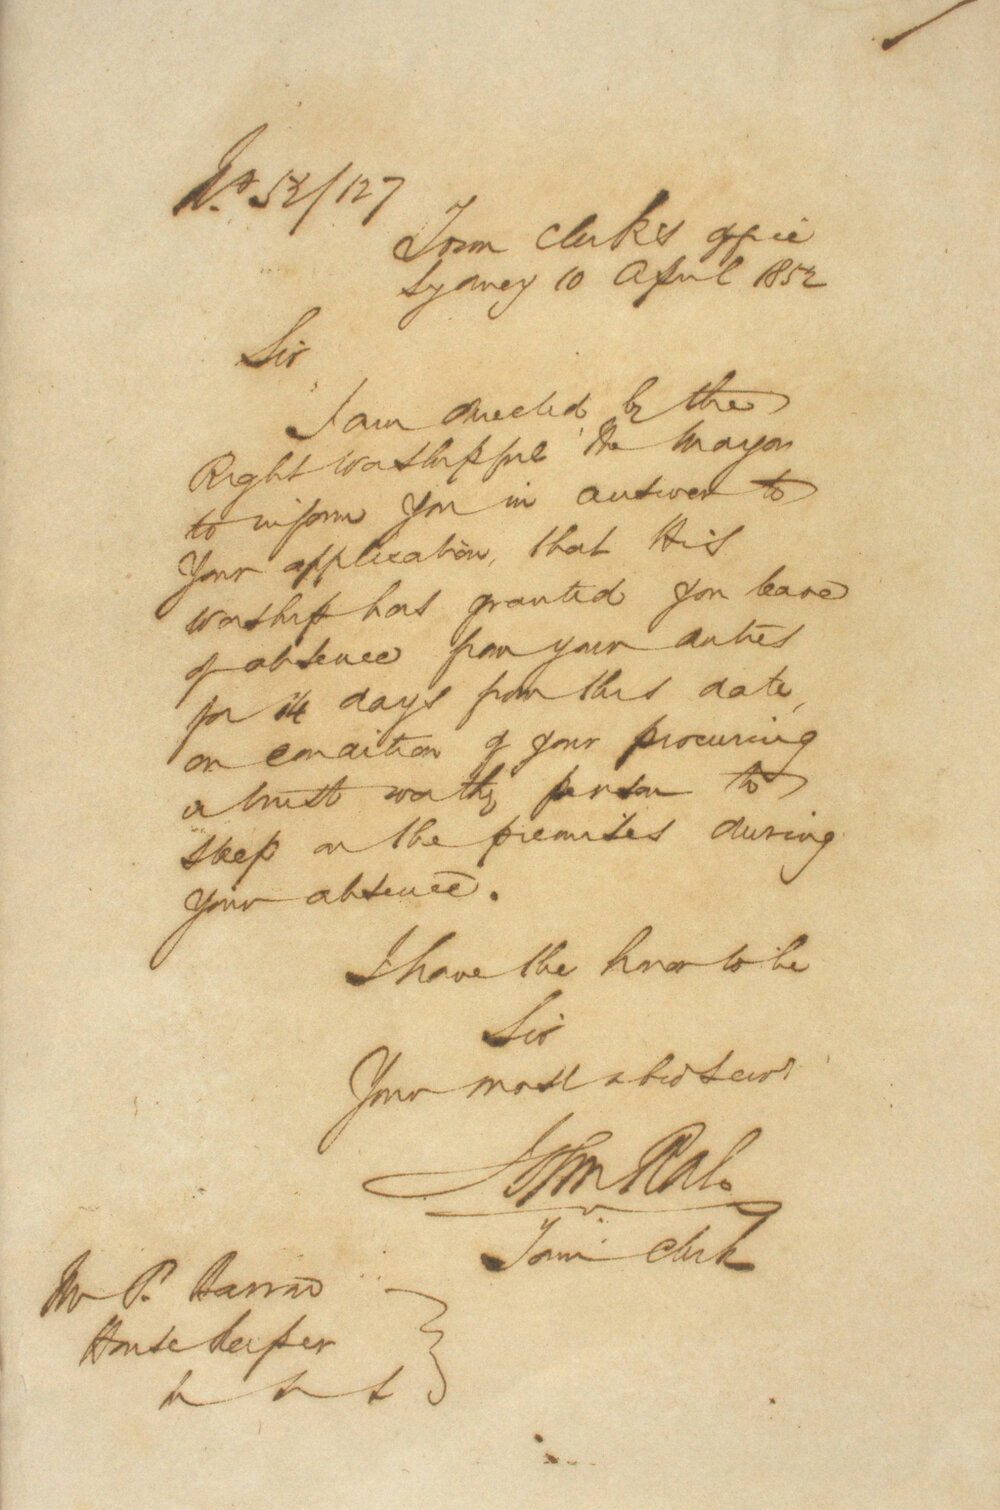 No. 52/127
Town Clerk's Office
Sydney 10 April 1852
Sir
I am directed by the
Right Worshipful The Mayor
to inform you in answer to
your application, that His
Worship has granted you leave
of absence from your duties
for 14 days from this date,
on condition of your procuring
a trust worthy person to
sleep on the premises during
your absence.
I have the honor to be
Sir
Your most obedt servt
John Rae
Town Clerk
Mr P.
House Keeper